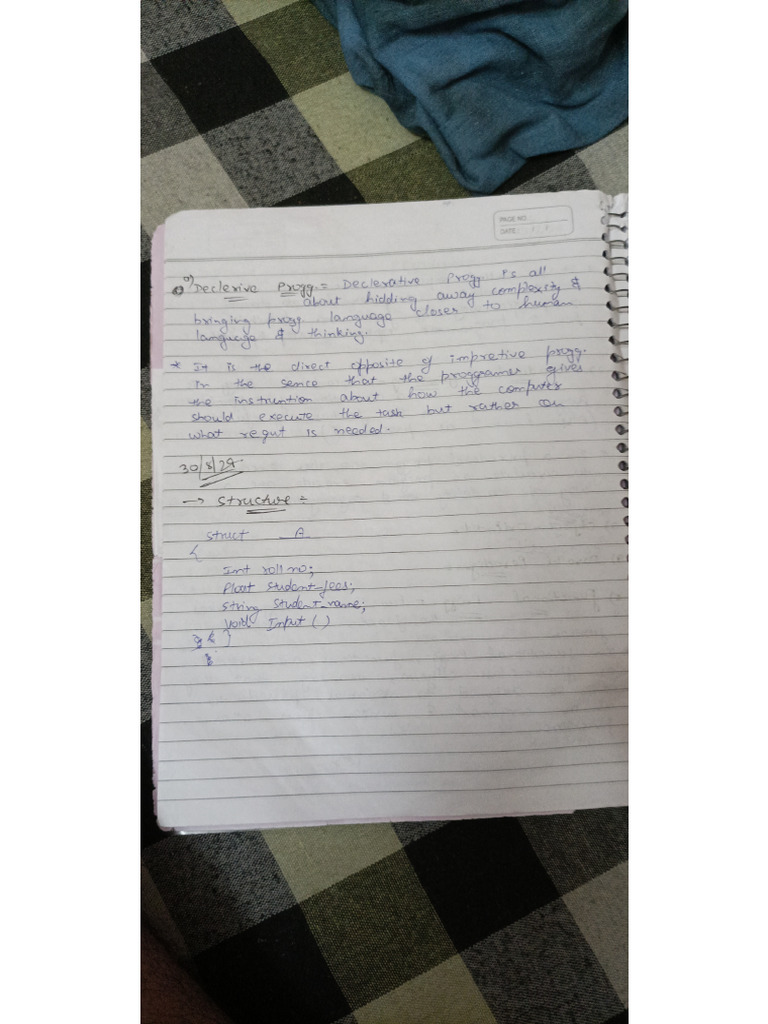 PAGE NO.
DATE: / /
Declerive Progg. = Declerative Progg. is all
about hidding away complexity &
bringing progg language closer to human
language & thinking.
* It is the direct opposite of impretive progg.
in the sence that the programer gives
the instruntion about how the computer
should execute the task but rather on
what regut is needed.
30/8/24
→ Structure =
struct A
{
Int roll no;
Float student_fees;
string student_name;
void Input ()
}